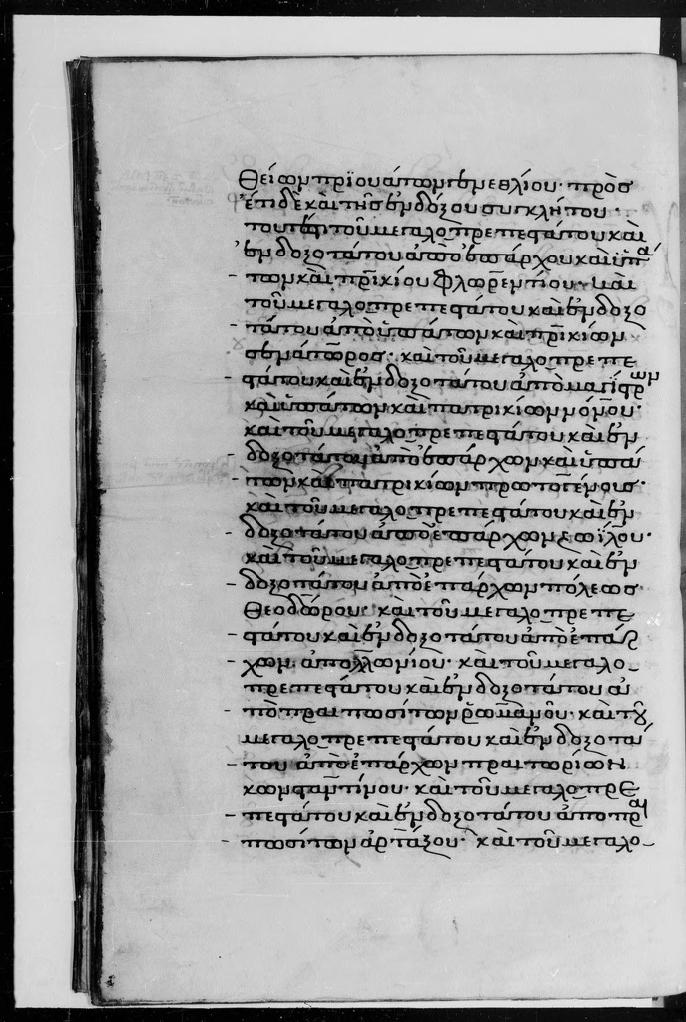 θείων πρϊουάτων γενεθλίου· πρὸσ
ἔτι δὲ καὶ τῆσ ἐνδόξου συγκλήτου·
τουτέστι τοῦ μεγαλοπρεπεστάτου καὶ
ἐνδοξοτάτου ἀπὸ ἐπάρχου καὶ ὑπά
των καὶ πρικίου φλωρεντίου· καὶ
τοῦ μεγαλοπρεπεστάτου καὶ ἐνδοξο
τάτου ἀπὸ ὑπάτων καὶ πρικίων
σενάτωρος· καὶ τοῦ μεγαλοπρεπε
στάτου καὶ ἐνδοξοτάτου ἀπὸ μαγίστρων
καὶ ὑπάτων καὶ πατρικίων νόμου·
καὶ τοῦ μεγαλοπρεπεστάτου καὶ ἐν
δοξοτάτου ἀπὸ ἐπάρχων καὶ ὑπά
των καὶ πατρικίων πρωτογένουσ·
καὶ τοῦ μεγαλοπρεπεστάτου καὶ ἐν
δοξοτάτου ἀπὸ ἐπάρχων ζωΐλου·
καὶ τοῦ μεγαλοπρεπεστάτου καὶ ἐν
δοξοτάτου ἀπὸ ἐπάρχων πόλεωσ
θεοδώρου· καὶ τοῦ μεγαλοπρεπε
στάτου καὶ ἐνδοξοτάτου ἀπὸ ἐπάρ
χων ἀπολλωνίου· καὶ τοῦ μεγαλο
πρεπεστάτου καὶ ἐνδοξοτάτου ἀ
πὸ πραιποσίτων ῥωμανοῦ· καὶ τοῦ
μεγαλοπρεπεστάτου καὶ ἐνδοξοτά
του ἀπὸ ἐπάρχων πραιτωρίων
κωνσταντίνου· καὶ τοῦ μεγαλοπρε
πεστάτου καὶ ἐνδοξοτάτου ἀπο πραι
ποσίτων ἀρτάξου· καὶ τοῦ μεγαλο